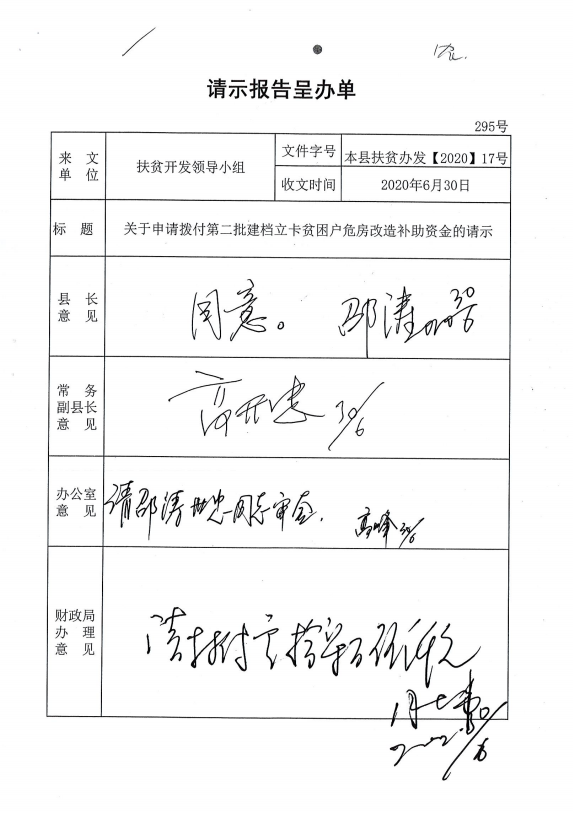 请示报告呈办单
295号
来文单位
扶贫开发领导小组
文件字号
本县扶贫办发【2020】17号
收文时间
2020年6月30日
标题
关于申请拨付第二批建档立卡贫困户危房改造补助资金的请示
县长意见
同意。 邵涛 30/6
常务副县长意见
30/6
办公室意见
请邵涛 同志审签. 高峰 30/6
财政局办理意见
请拨付
30/6